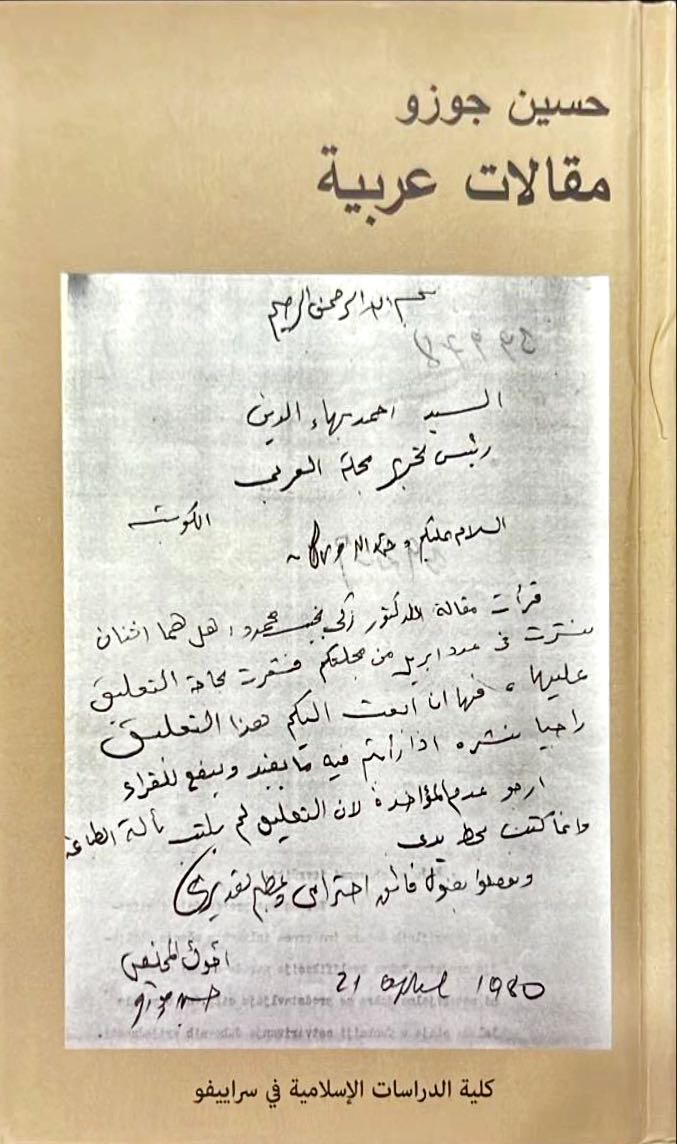 حسين جوزو
مقالات عربية
بسم الله الرحمن الرحيم
السيد احمد بهاء الدين
رئيس تحرير مجلة العربي
الكويت
السلام عليكم ورحمة الله وبركاته
قرأت مقالة الدكتور زكي نجيب محمود: هل هما اثنان
نشرت في عدد ابريل من مجلتكم فشعرت بحاجة التعليق
عليها، فها ان ابعث اليكم هذا التعليق
راجيا نشره اذا رأيتم فيه ما يفيد وينفع للقراء
ارجو عدم المؤاخذة لان التعليق لم يكتب بآلة الطباعة
وانما كتب بخط يدي
وتفضلوا بقبول فائق احترامي وعظيم تقديري
اخوك المخلص
حسين جوزو
21 april 1980
كلية الدراسات الإسلامية في سراييفو